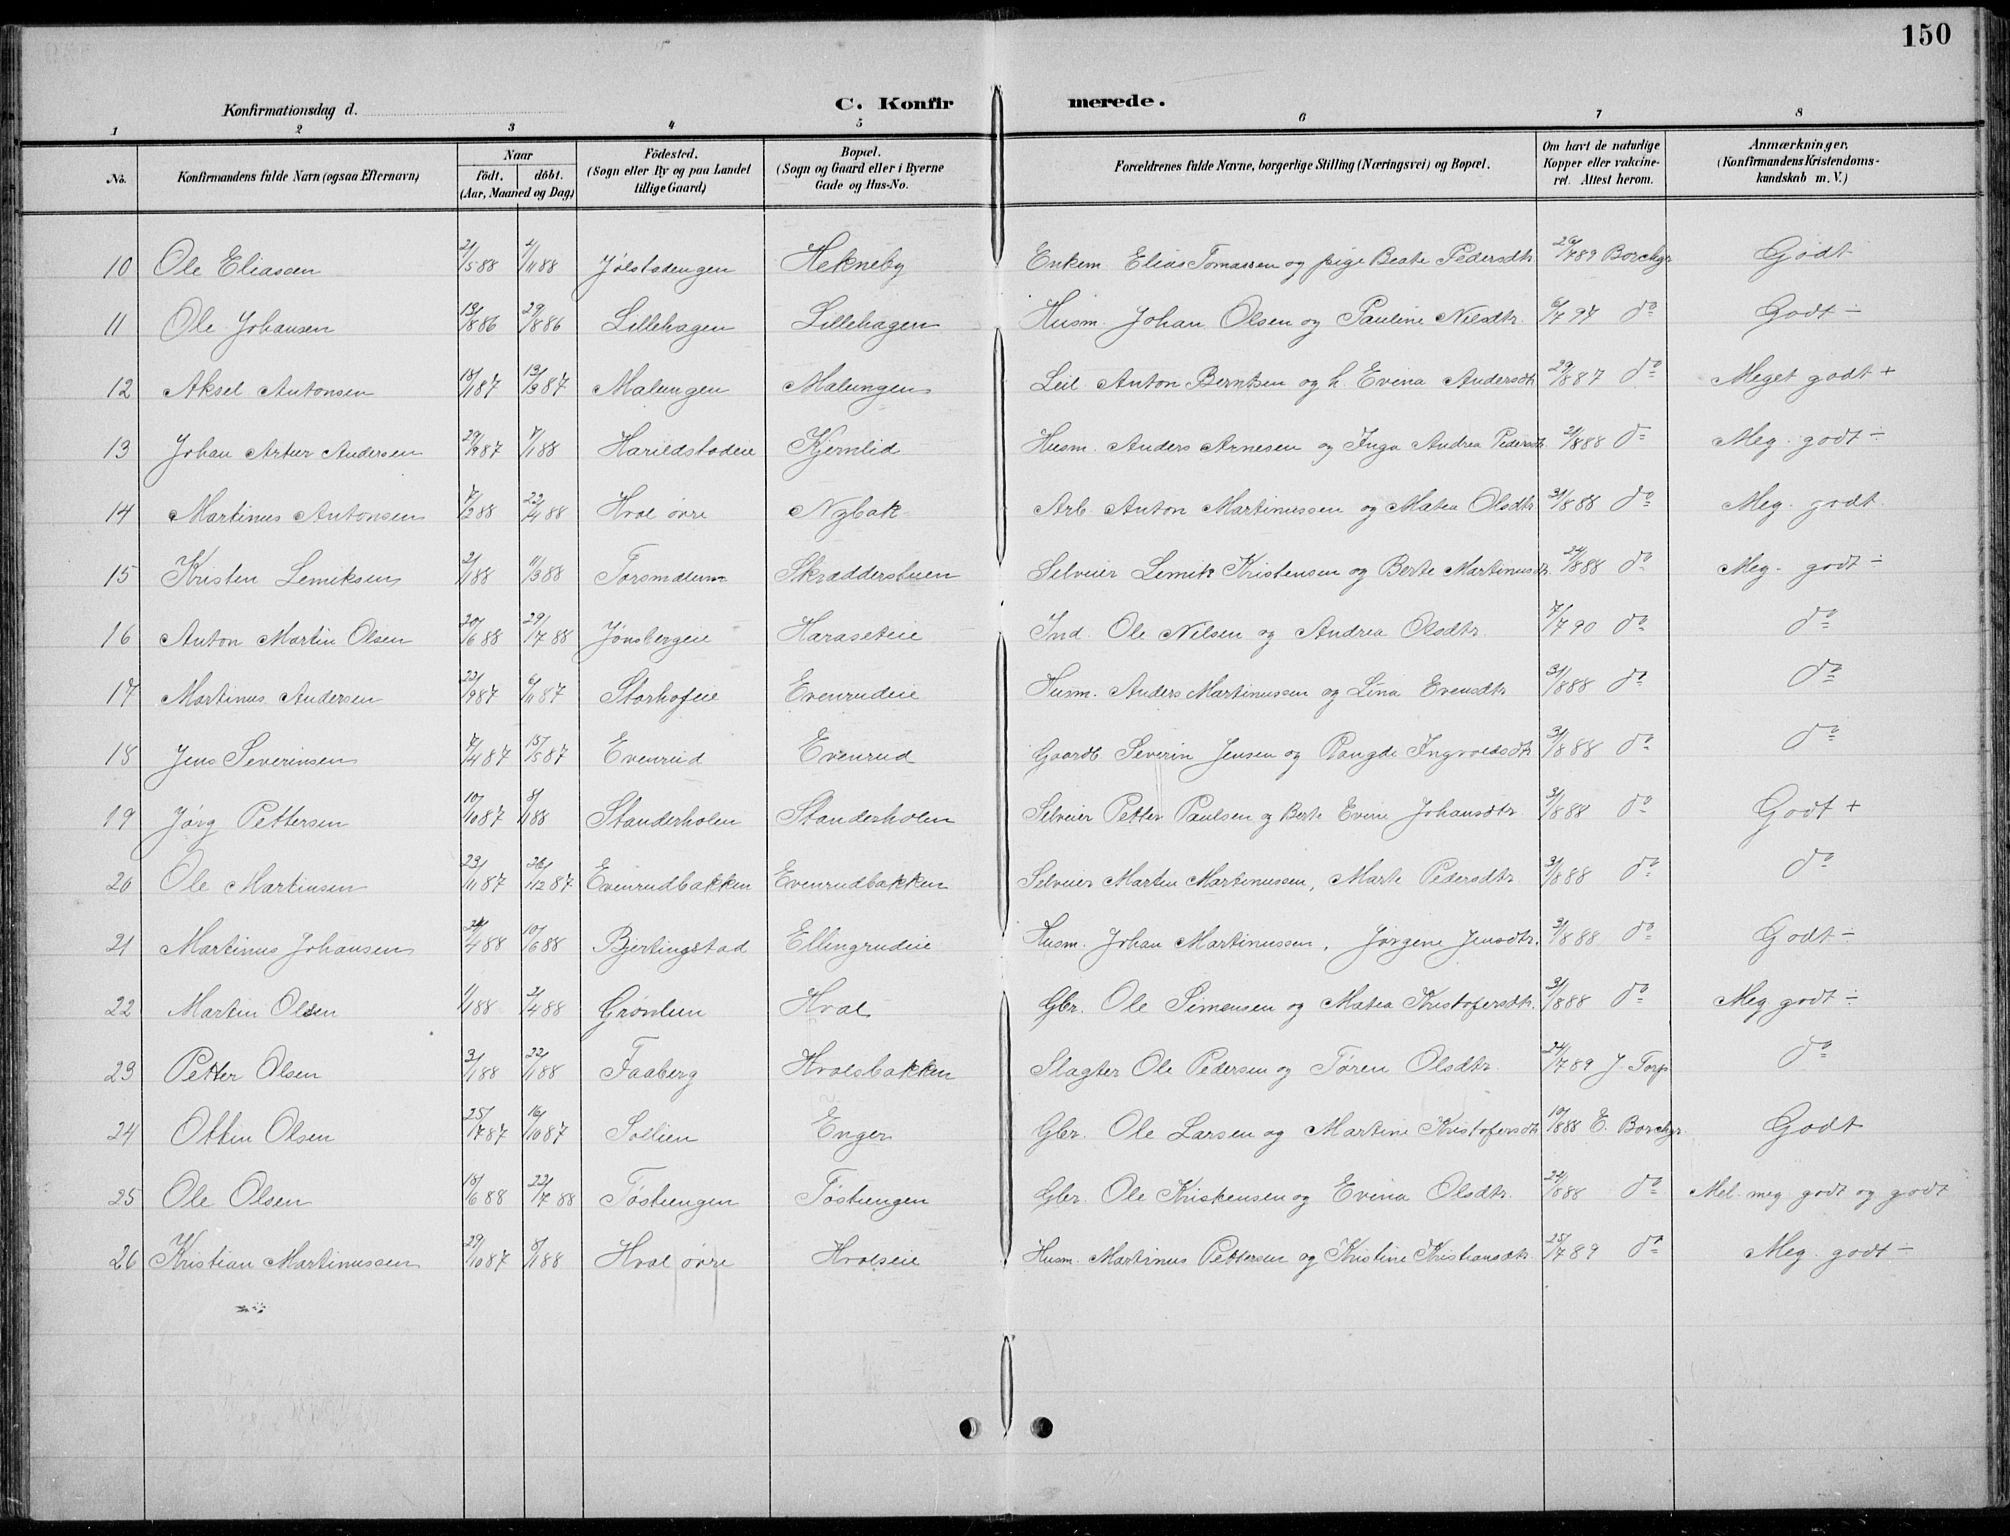 150
Konfirmationsdag d.
C. Konfirmerede.
1 2 3 4 5 6 7 8
No. Konfirmandens fulde Navn (ogsaa Efternavn) Naar født. døbt. (Aar, Maaned og Dag) Fødested. (Sogn eller By og paa Landet tillige Gaard) Bopæl. (Sogn og Gaard eller i Byerne Gade og Hus-No. Forældrenes fulde Navne, borgerlige Stilling (Næringsvei) og Bopæl. Om havt de naturlige Kopper eller vakcineret. Attest herom. Anmærkninger, (Konfirmandens Kristendomskundskab m. V.)
10 Ole Eliasen 2/5 88 4/11 88 Jølstadengen Hekneby Enkem. Elias Tomassen og pige Beate Pedersdtr. 26/7 89 Borchgr Godt
11 Ole Johansen 13/8 86 29/8 86 Lillehagen Lillehagen Husm. Johan Olsen og Pauline Nilsdtr. 6/7 97 do Godt ÷
12 Aksel Antonsen 18/1 87 13/3 87 Malungen Malungen Leil. Anton Berntsen og h. Evina Andersdtr. 29/8 87 do Meget godt +
13 Johan Artur Andersen 29/9 87 7/1 88 Harildstadeie Kjernlid Husm. Anders Arnesen og Inga Andrea Pedersdtr. 31/8 88 do Meg. godt ÷
14 Martinus Antonsen 7/2 88 22/4 88 Hval øvre Nybak Arb. Anton Martinussen og Matea Olsdtr. 31/8 88 do Meg. godt.
15 Kristen Lemiksen 2/1 88 11/3 88 Skræddersbuen Selveier Lemik Kristensen og Berte Martinusdtr. 24/8 88 do Meg. godt ÷
16 Anton Martin Olsen 20/6 88 29/7 88 Jønsbergeie Haraseteie Ind. Ole Nilsen og Andrea Olsdtr. 7/7 90 do do
17 Martinus Andersen 22/9 87 6/11 87 Storhofeie Evenrudeie Husm. Anders Martinussen og Lina Evensdtr. 31/8 88 do do
18 Jens Severinsen 7/4 87 15/5 87 Evenrud Evenrud Gaardb. Severin Jensen og Rangdi Ingvoldsdtr. 31/8 88 do do
19 Jørg Pettersen 10/10 87 8/1 88 Standerholen Standerholen Selveier Petter Paulsen og Berte Evine Johansdtr. 31/8 88 do Godt +
20 Ole Martinsen 23/11 87 26/12 87 Evenrudbakken Evenrudbakken Selveier Martin Martinussen, Marte Pedersdtr. 31/8 88 do do
21 Martinus Johansen 24/4 88 10/6 88 Bjertingstad Ellingrudeie Husm. Johan Martinussen, Jørgene Jensdtr. 31/8 88 do Godt ÷
22 Martin Olsen 1/1 88 2/4 88 Grønlien Hval Gbr. Ole Simensen og Matea Kristofersdtr. 31/8 88 do Meg godt ÷
23 Petter Olsen 3/1 88 22/1 88 Faaberg Hvalsbakken Slagter Ole Pedersen og Tøren Olsdtr. 24/7 89 J. Torp do
24 Ottin Olsen 25/7 87 16/10 87 Sollien Enger Gbr. Ole Larsen og Martine Kristofersdtr. 10/8 88 E. Borchgr Godt
25 Ole Olsen 18/6 88 22/7 88 Tøstiengen Tøstiengen Gbr. Ole Kristensen og Evina Olsdtr. 22/8 88 do Mel. meg godt og godt
26 Kristian Martinussen 29/10 87 8/1 88 Hval øvre Hvalseie Husm. Martinus Pettersen og Kristine Kristiansdtr. 25/7 89 do Meg. godt ÷